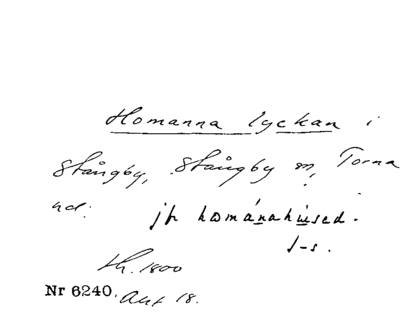 Homanna lyckan i
Stångby, Stångby sn, Torna
hd. jfr hománahúsed.
1-s.
Kh. 1800
Nr 6240. Akt 18.